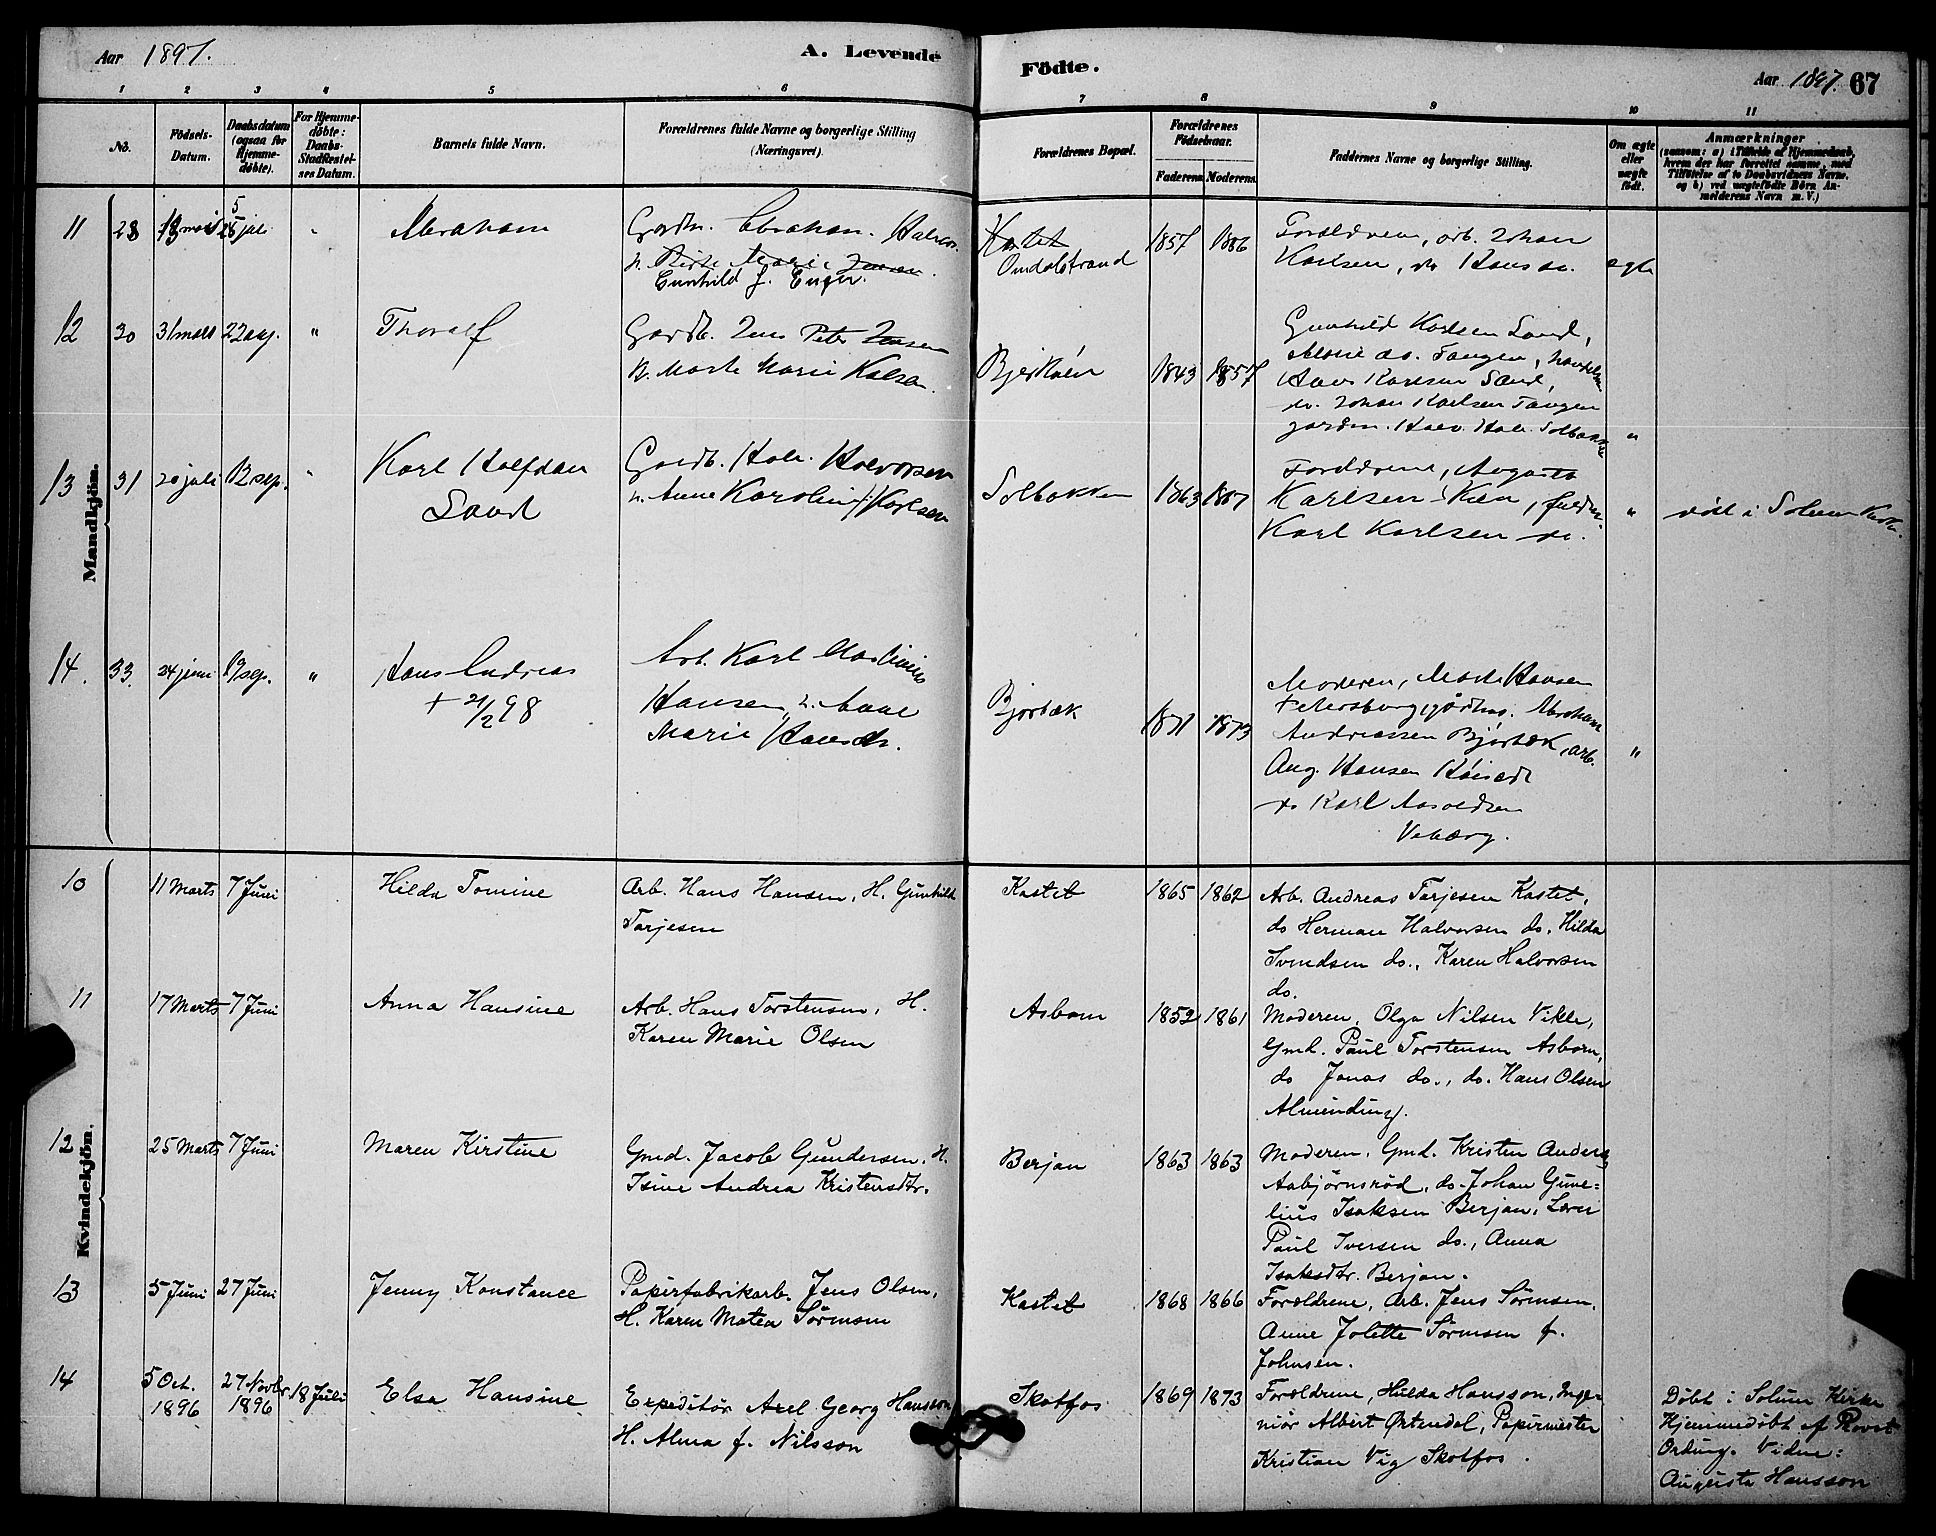 Aar 1897. A. Levende Födte. Aar 1897. 67
1 2 3 4 5 6 7 8 9 10 11
No. Födsels-Datum. Daabsdatum (ogsaa for Hjemme-döbte). For Hjemme-döbte: Daabs-Stadfæstel-ses Datum. Barnets fulde Navn. Forældrenes fulde Navne og borgerlige Stilling (Næringsvei). Forældrenes Bopæl. Forældrenes Födselsaar. Faderens Moderens Faddernes Navne og borgerlige Stilling. Om ægte eller uægte födt. Anmærkninger
(saasom: a) i Tilfælde af Hjemmedaab, hvem der har forrettet samme, med Tilföielse af to Daabsvidners Navne, og b) ved uægtefödte Börn An-melderens Navn m. V.)
Mandkjön.
11 28 Abraham Gardbr. Abraham Halvor
Gunhild f.
Omdalstrand 1857 1886 Forældrene, arb. Johan
Karlsen, do Hans do. ægte
12 30 31 mai 22 aug. " Thoralf Gardb. Jens Peter Jensen
H. Marte Marie Karlsen.
1843 1857 Gunhild Karlsen Sand,
do. Tangen,
Hans Karlsen Sand,
do. Johan Karlsen Tangen
Halv. Solbakken "
13 31 20 juli 12 sep. " Karl Halfdan
Sand
Gardb. Halv. Halvorsen
H. Anne Karoline Karlsen
Solbakken 1863 1867 Forældrene, Augusta
Karlsen Skien,
Karl Karlsen do. " döbt i Solum Kirke.
14. 33. 24 juni 19 sep. " Hans Andreas
+ 21/2 98
Arb. Karl Martinius
Hansen, H. Anne
Marie Hansdr.
Bjørbæk 1871 1873 Moderen, Marte Hansen
Abraham
Andreassen Bjørbæk, arb.
Aug. Hansen
do Karl Aasoldsen
"
Kvindekjön.
10 11 Marts 7 Juni Hilda Tomine Arb. Hans Hansen, H. Gunhild
Tarjesen
Kastet 1865 1862 Arb. Andreas Tarjesen Kastet,
do Herman Halvorsen do. Hilda
Svendsen do., Karen Halvorsen
do.
11 17 Marts 7 Juni Anna Hansine Arb. Hans Torstensen, H.
Karen Marie Olsen
Asbom 1852 1861 Moderen, Olga Nilsen Vikle,
Gmd. Paul Torstensen Asbom,
do Jonas do., do. Hans Olsen
Almending.
12 25 Marts 7 Juni Maren Kirstine Gmd. Jacob Gundersen, H.
Isine Andrea Kristensdtr.
Berjan 1863 1863 Moderen, Gmd. Kristen Anders.
Aabjørnsrød, do. Johan Gune=
lius Isaksen Berjan, Lærer
Paul Iversen do., Anna
Isaksdtr. Berjan.
13 5 Juni 27 Juni Jenny Konstance Papirfabrikarb. Jens Olsen,
H. Karen Matea Sörensen
Kastet 1868 1866 Forældrene, Arb. Jens Sörensen,
Anne Jolette Sörensen f.
Johnsen.
14 5 Oct. 1896 27 Novbr. 1896 18 Juli Elsa Hansine Expeditör Axel Georg Hansson
H. Alma f. Nilsson
Skotfos 1869 1873 Forældrene, Hulda Hansson, Inge-
niör Albert Örtendal, Papirmester
Kristian Vig Skotfos.
Döbt i Solum Kirke
Hjemmedöbt af Provst
Ording. Vidne:
Augusta Hansson